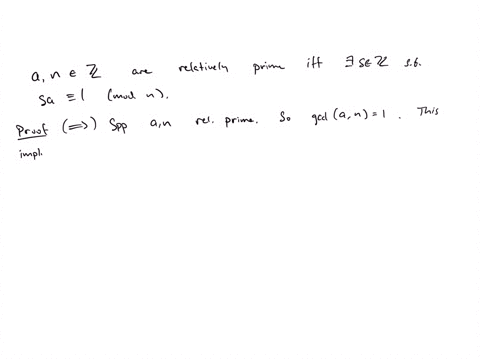 a, n ∈ ℤ are relatively prime iff ∃ s∈ℤ s.t.
sa ≡ 1 (mod n).
Proof (⟹) Spp a,n rel. prime. So gcd(a,n)=1. This
impl